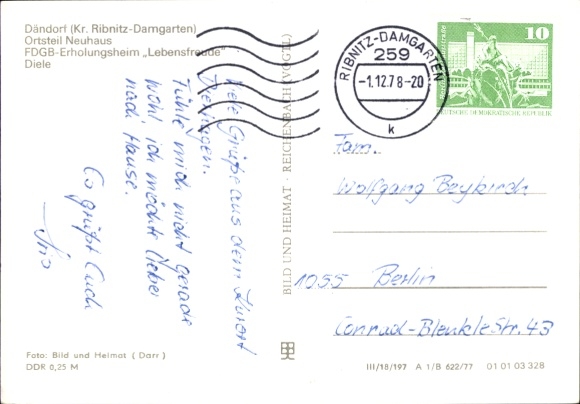 Dändorf (Kr. Ribnitz-Damgarten)
Ortsteil Neuhaus
FDGB-Erholungsheim „Lebensfreude"
Diele
Viele Grüße aus dem Kurort
Fühle mich nicht gerade
wohl ich möchte lieber
nach Hause.
Es grüßt Euch
BILD UND HEIMAT · REICHENBACH (VOGTL)
RIBNITZ-DAMGARTEN
259
-1.12.78-20
k
10
DEUTSCHE DEMOKRATISCHE REPUBLIK
Fam.
Wolfgang Beykirch
1055 Berlin
Conrad-Blenkle Str. 43
Foto: Bild und Heimat (Darr)
DDR 0,25 M
III/18/197 A 1/B 622/77 01 01 03 328